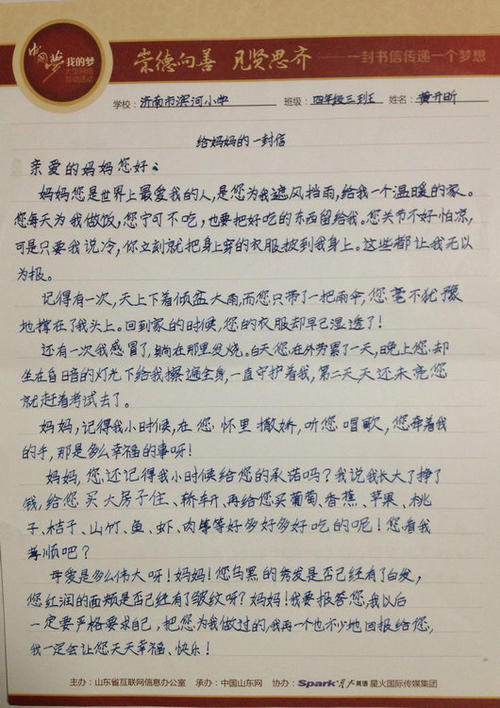 中国梦 我的梦
崇德向善 见贤思齐 一封书信传递一个梦想
学校：济南市滨河小学 班级：四年级三班 姓名：黄开昕
给妈妈的一封信
亲爱的妈妈您好：
妈妈您是世界上最爱我的人，是您为我遮风挡雨，给我一个温暖的家。
您每天为我做饭，您宁可不吃，也要把好吃的东西留给我。您关节不好怕凉，
可是只要我说冷，你立刻就把身上穿的衣服披到我身上。这些都让我无以
为报。
记得有一次，天上下着倾盆大雨，而您只带了一把雨伞，您毫不犹豫
地撑在了我头上。回到家的时候，您的衣服却早已湿透了！
还有一次我感冒了，躺在那里发烧。白天您在外劳累了一天，晚上您却
坐在自暗的灯光下给我擦遍全身，一直守护着我，第二天天还未亮您
就赶着考试去了。
妈妈，记得我小时候，在您怀里撒娇，听您唱歌，您牵着我
的手，那是多么幸福的事呀！
妈妈，您还记得我小时候给您的承诺吗？我说我长大了挣了
钱，给您买大房子住、轿车开，再给您买葡萄、香蕉、苹果、桃
子、桔子、山竹、鱼、虾、肉等等好多好多好吃的呢！您看我
孝顺吧？
母爱是多么伟大呀！妈妈！您乌黑的秀发是否已经有了白发，
您红润的面颊是否已经有了皱纹呀？妈妈！我要报答您，我以后
一定要严格要求自己，把您为我做过的，我再一个也不少地回报给您，
我一定会让您天天幸福、快乐！
主办：山东省互联网信息办公室 承办：中国山东网 协办：Spark 星火英语 星火国际传媒集团